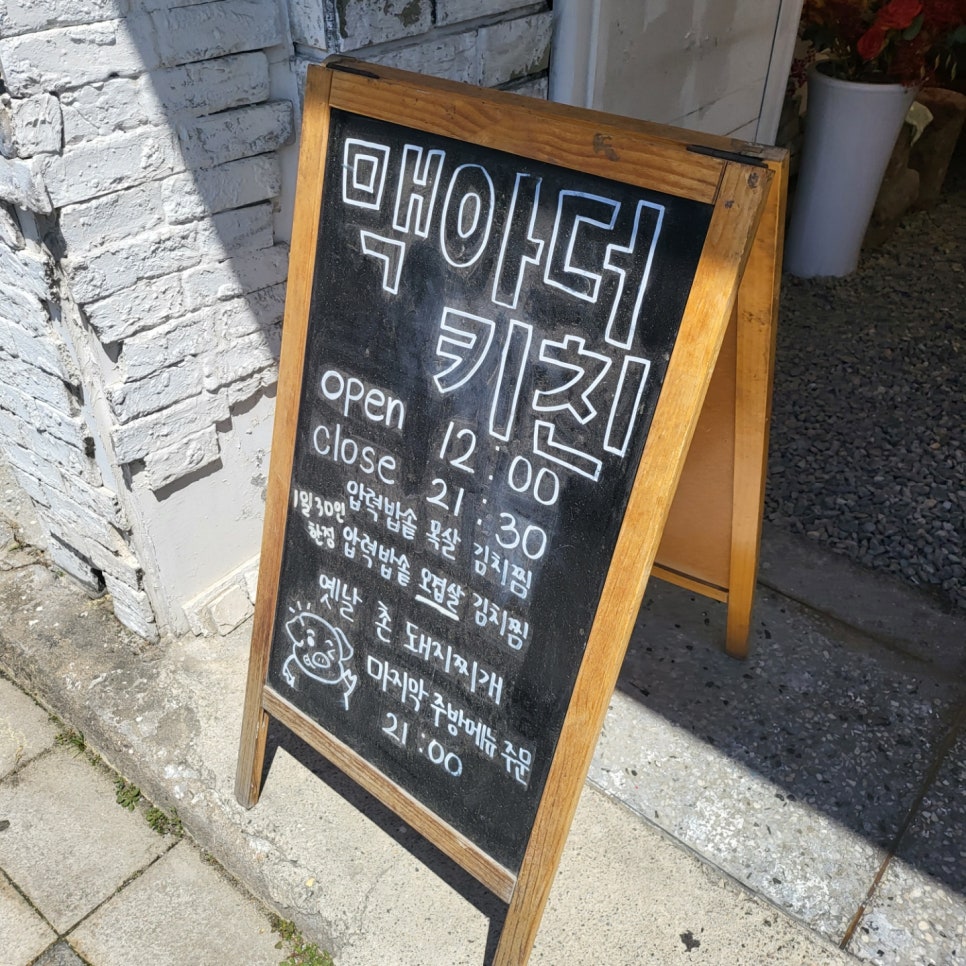 맥아더
키친
open 12:00
close 21:30
압력밥솥 목살 김치찜
1일 30인
한정
압력밥솥 오겹살 김치찜
옛날 촌 돼지찌개
마지막 주방메뉴 주문
21:00